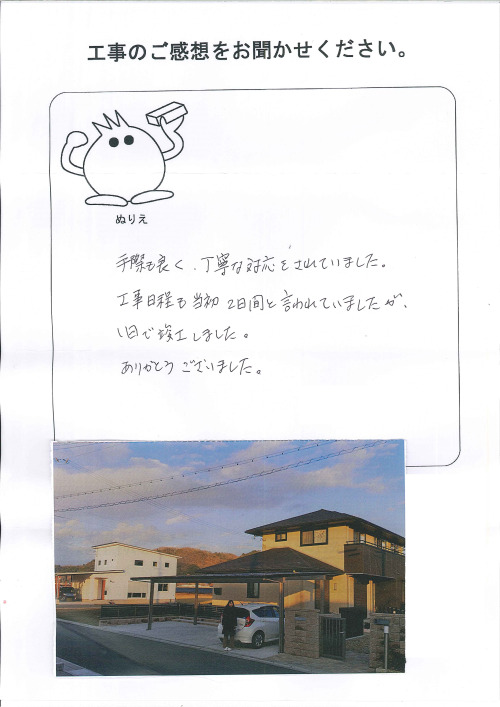 工事のご感想をお聞かせください。
ぬりえ
手際も良く、丁寧な対応をされていました。
工事日程も当初2日間と言われていましたが、
1日で竣工しました。
ありがとうございました。